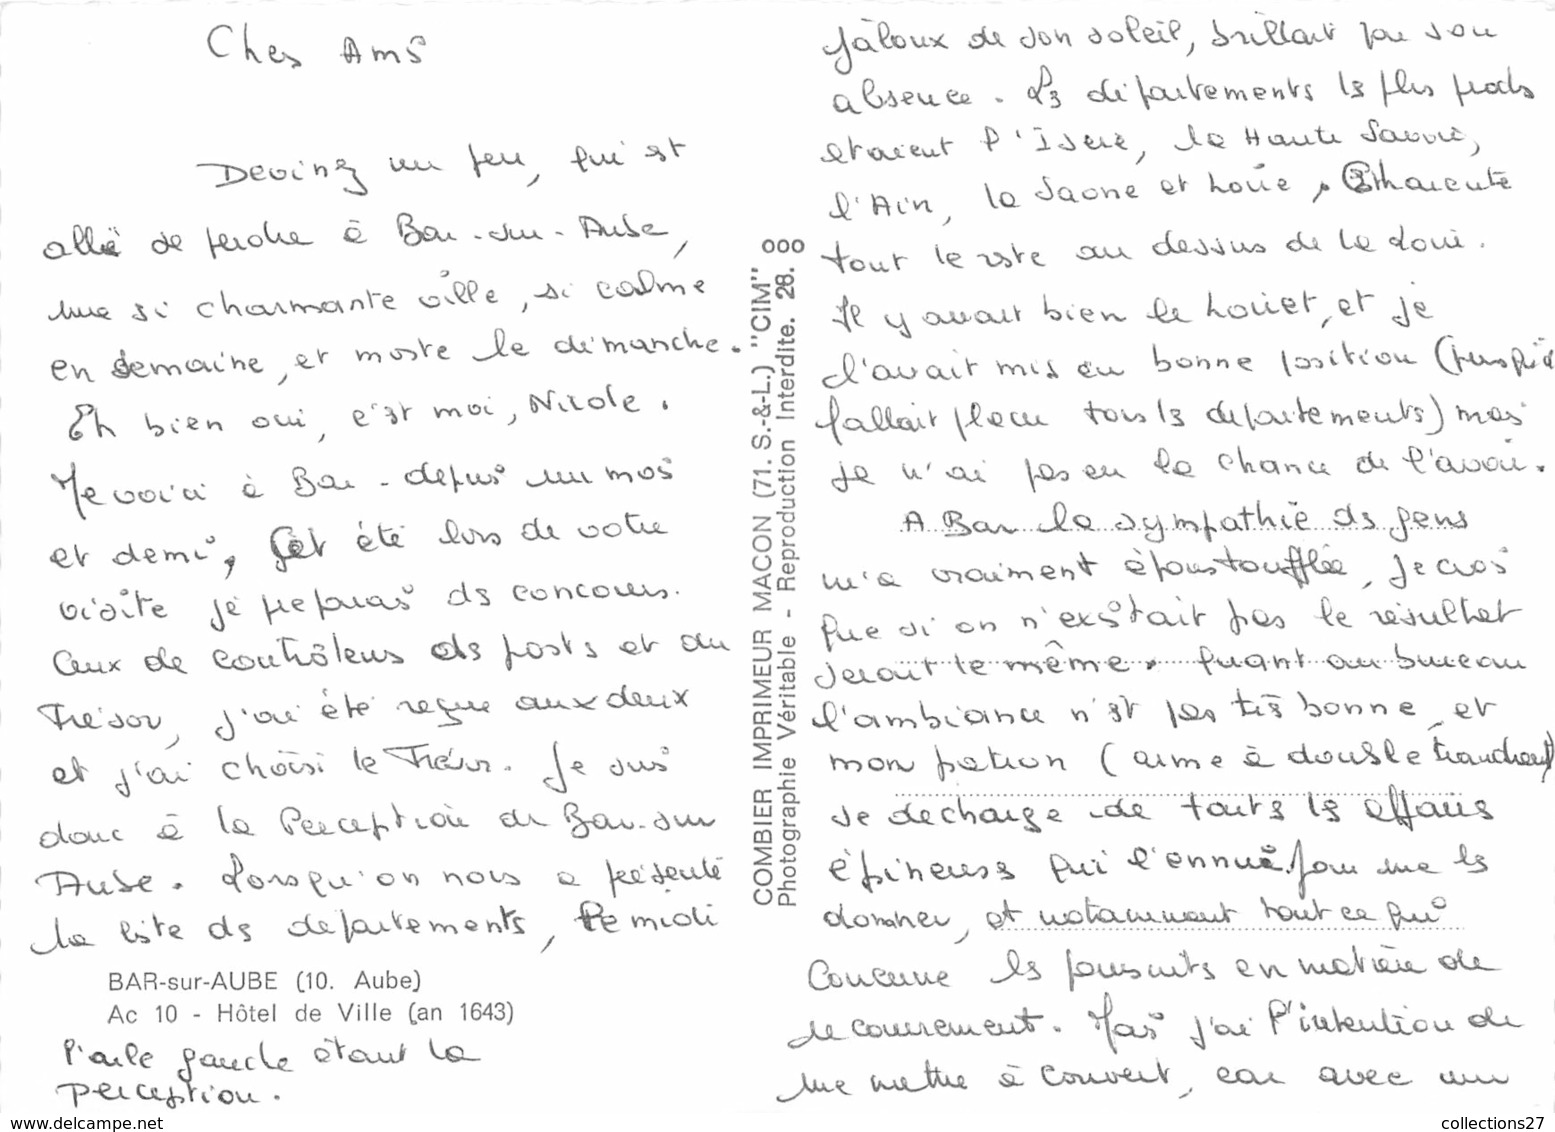 Chers Amis
Devinez un peu, qui est
allée se perdre à Bar-sur-Aube,
une si charmante ville, si calme
en semaine, et morte le dimanche.
Eh bien oui, c'est moi, Nicole.
Me voici à Bar-depuis un mois
et demi, Cet été lors de votre
visite je préparais des concours.
Ceux de contrôleurs des postes et du
Trésor, j'ai été reçue aux deux
et j'ai choisi le Trésor. Je suis
donc à la Perception de Bar-sur
Aube. Lorsqu'on nous a présenté
la liste des départements, le midi
BAR-sur-AUBE (10. Aube)
Ac 10 - Hôtel de Ville (an 1643)
l'aile gauche étant la
perception.
COMBIER IMPRIMEUR MACON (71. S.-&-L.) "CIM"
Photographie Véritable - Reproduction Interdite. 26. 000
jaloux de son soleil, brillait par son
absence. Les départements les plus proches
étaient l'Isère, la Haute Savoie,
l'Ain, la Saone et Loire, Charente
tout le reste au dessus de la Loire.
Il y avait bien le Loiret, et je
l'avait mis en bonne position (puisqu'il
fallait placer tous les départements) mais
je n'ai pas eu la chance de l'avoir.
A Bar la sympathie des gens
m'a vraiment époustoufflée, je crois
que si on n'existait pas le résultat
serait le même. quant au bureau
l'ambiance n'est pas très bonne, et
mon patron (arme à double tranchant)
se décharge de toutes les affaires
épineuses qui l'ennuie pour me les
donner, et notamment tout ce qui
concerne les poursuites en matière de
recouvrement. Mais j'ai l'intention de
me mettre à couvert, car avec un
collections27